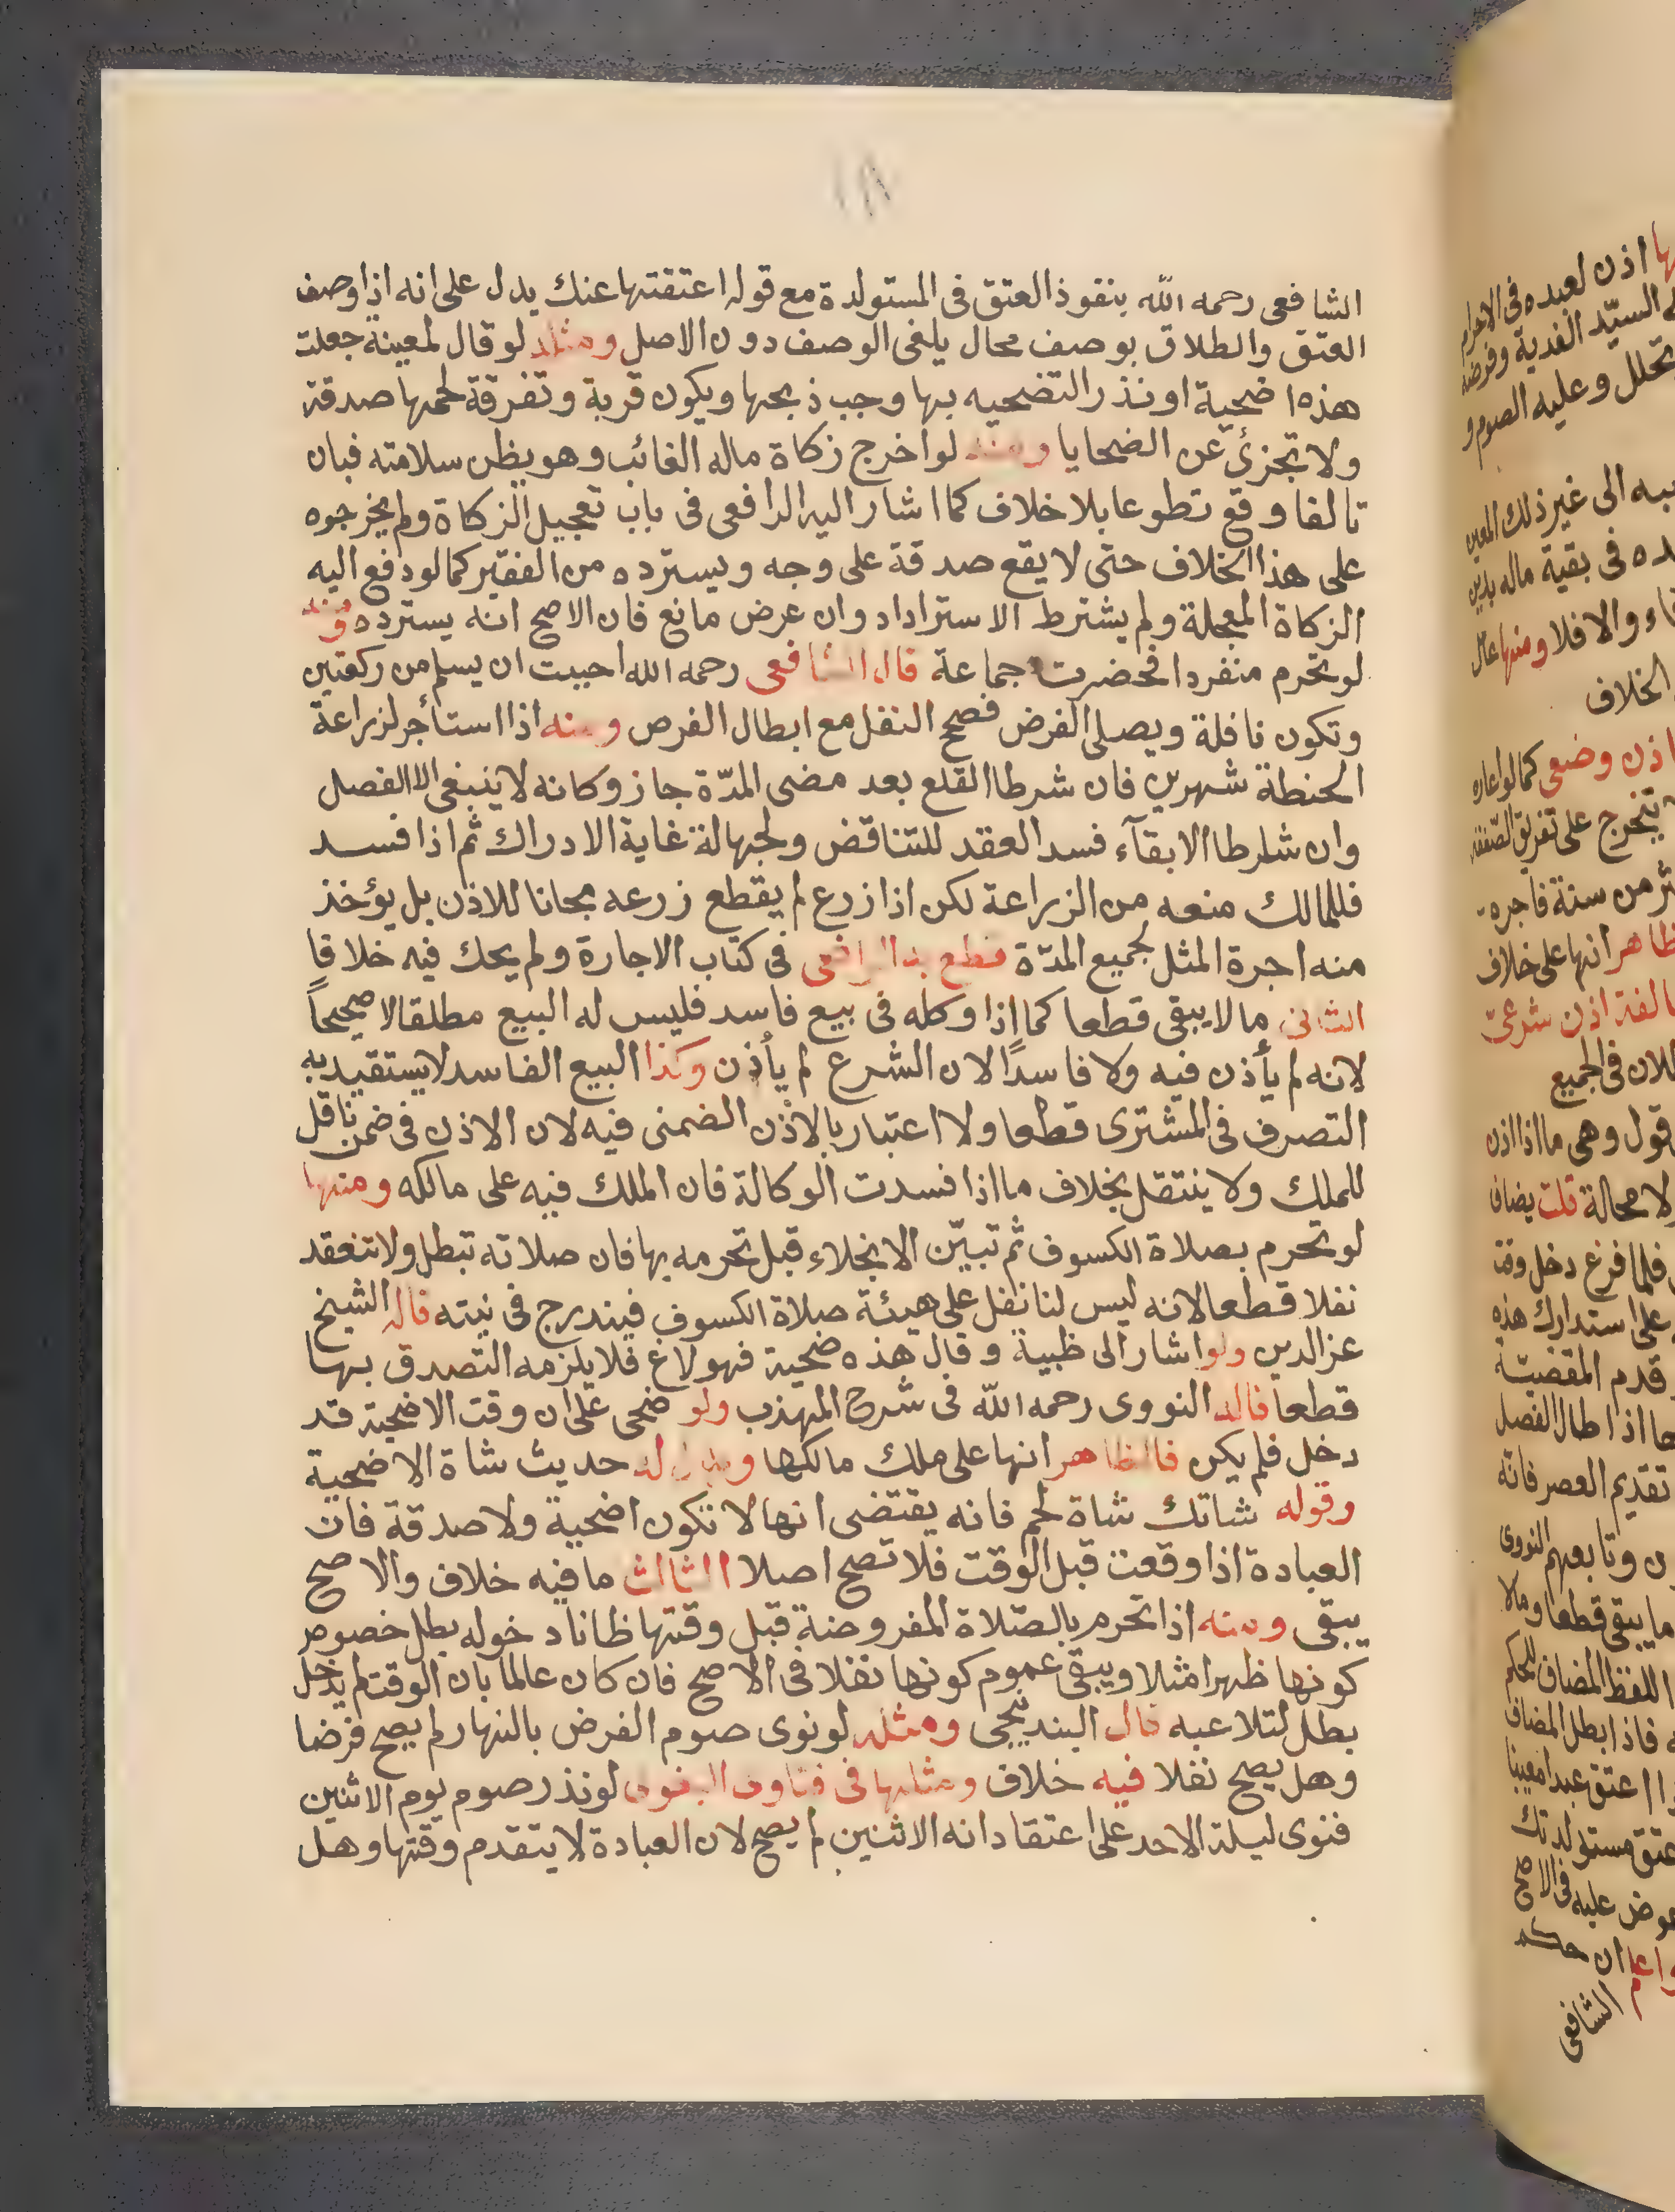 ١٨١
الشافعى رحمه الله بنفوذ العتق فى المستولدة مع قوله اعتقتها عنك يدل على انه اذا وصف
العتق والطلاق بوصف محال يلغى الوصف دون الاصل ومثله لو قال لمعينة جعلت
هذه اضحية او نذر التضحيه بها وجب ذبحها ويكون قربة وتفرقة لحمها صدقة
ولا تجزئ عن الضحايا ومنه لو اخرج زكاة ماله الغائب وهو يظن سلامته فبان
تالفا وقع تطوعا بلا خلاف كما اشار اليه الرافعى فى باب تعجيل الزكاة ولم يخرجوه
على هذا الخلاف حتى لا يقع صدقة على وجه ويسترده من الفقير كما لو دفع اليه
الزكاة المعجلة ولم يشترط الاسترداد وان عرض مانع فان الاصح انه يسترده ومنه
لو تحرم منفردا فحضرت جماعة قال الشافعى رحمه الله احببت ان يسلم من ركعتين
وتكون نافلة ويصلى الفرض فصح النفل مع ابطال الفرص ومنه اذا استأجر لزراعة
الحنطة شهرين فان شرطا القلع بعد مضى المدّة جاز وكانه لا ينبغى الا الفصل
وان شارطا الابقآء فسد العقد للتناقض ولجهالة غاية الادراك ثم اذا فسد
فللمالك منعه من الزراعة لكن اذا زرع لم يقطع زرعه مجانا للاذن بل يؤخذ
منه اجرة المثل لجميع المدّة قطع به الرافعى فى كتاب الاجارة ولم يحك فيه خلافا
الثانى ما لا يبقى قطعا كما اذا وكله فى بيع فاسد فليس له البيع مطلقا لا صحيحاً
لانه لم يأذن فيه ولا فاسدًا لان الشرع لم يأذن وكذا البيع الفاسد لا يستفيد به
التصرف فى المشترى قطعا ولا اعتبار بالاذن الضمنى فيه لان الاذن فى ضمن ناقل
للملك ولا ينتقل بخلاف ما اذا فسدت الوكالة فان الملك فيه على مالكه ومنها
لو تحرم بصلاة الكسوف ثم تبيّن الانجلاء قبل تحرمه بها فان صلاته تبطل ولا تنعقد
نفلا قطعا لانه ليس لنا نفل على هيئة صلاة الكسوف فيندرج فى نيته قاله الشيخ
عز الدين ولو اشار الى ظبية وقال هذه ضحية فهو لاغ فلا يلزمه التصدق بها
قطعا قاله النووى رحمه الله فى شرح المهذب ولو ضحى على ان وقت الاضحية قد
دخل فلم يكن فالظاهر انها على ملك مالكها ويدل له حديث شاة الاضحية
وقوله شاتك شاة لحم فانه يقتضى انها لا تكون اضحية ولا صدقة فان
العبادة اذا وقعت قبل الوقت فلا تصح اصلا الثالث ما فيه خلاف والاصح
يبقى ومنه اذا تحرم بالصّلاة المفروضة قبل وقتها ظانا دخوله بطل خصوص
كونها ظهرا مثلا ويبقى عموم كونها نفلا فى الاصح فان كان عالما بان الوقت لم يدخل
بطل لتلاعبه قال البندنيجى ومثله لو نوى صوم الفرض بالنهار لم يصح فرضا
وهل يصح نفلا فيه خلاف ومثلها فى فتاوى البغوى لو نذر صوم يوم الاثنين
فنوى ليلة الاحد على اعتقاد انه الاثنين لم يصح لان العبادة لا يتقدم وقتها وهل
اذن لعبده فى الاحرام
السيّد الفدية وفرضه
تحلل وعليه الصوم و
الى غير ذلك المعين
فى بقية ماله بدين
والا فلا ومنها
الخلاف
اذن وضعى كما لو اعاره
يتخرج على تفريق الصّفقة
من سنة فاجره
انها على خلاف
اذن شرعىّ
فى الجميع
قول وهى ما اذا اذن
لا محالة قلت يضاف
فلما فرغ دخل وقت
على استدراك هذه
قدم المقضيّة
اذا طال الفصل
تقديم العصر فانه
وتابعهم النووى
ما يبقى قطعا وما لا
اللفظ المضاف للحكم
فاذا بطل المضاف
اعتق عبدا معيبا
عتق مستولدتك
عوض عليه فى الاصح
ان حكم
الشافعى